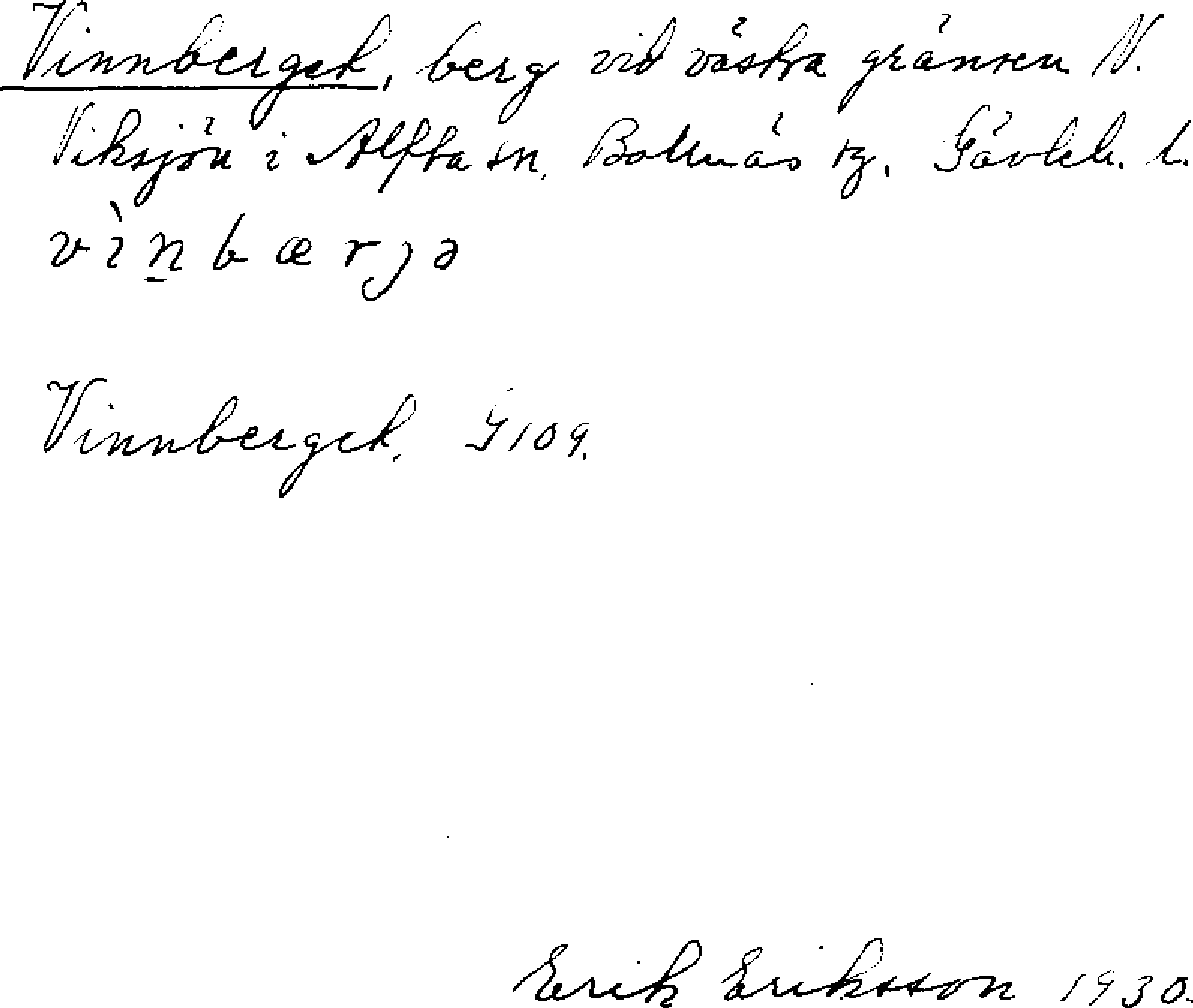 Vinnberget, berg vid västra gränsen N.
Viksjön i Alfta sn. Bollnäs tg. Gävleb. l.
v ì n̲ b æ r j ə
Vinnberget. G109.
Erik Eriksson 1930.